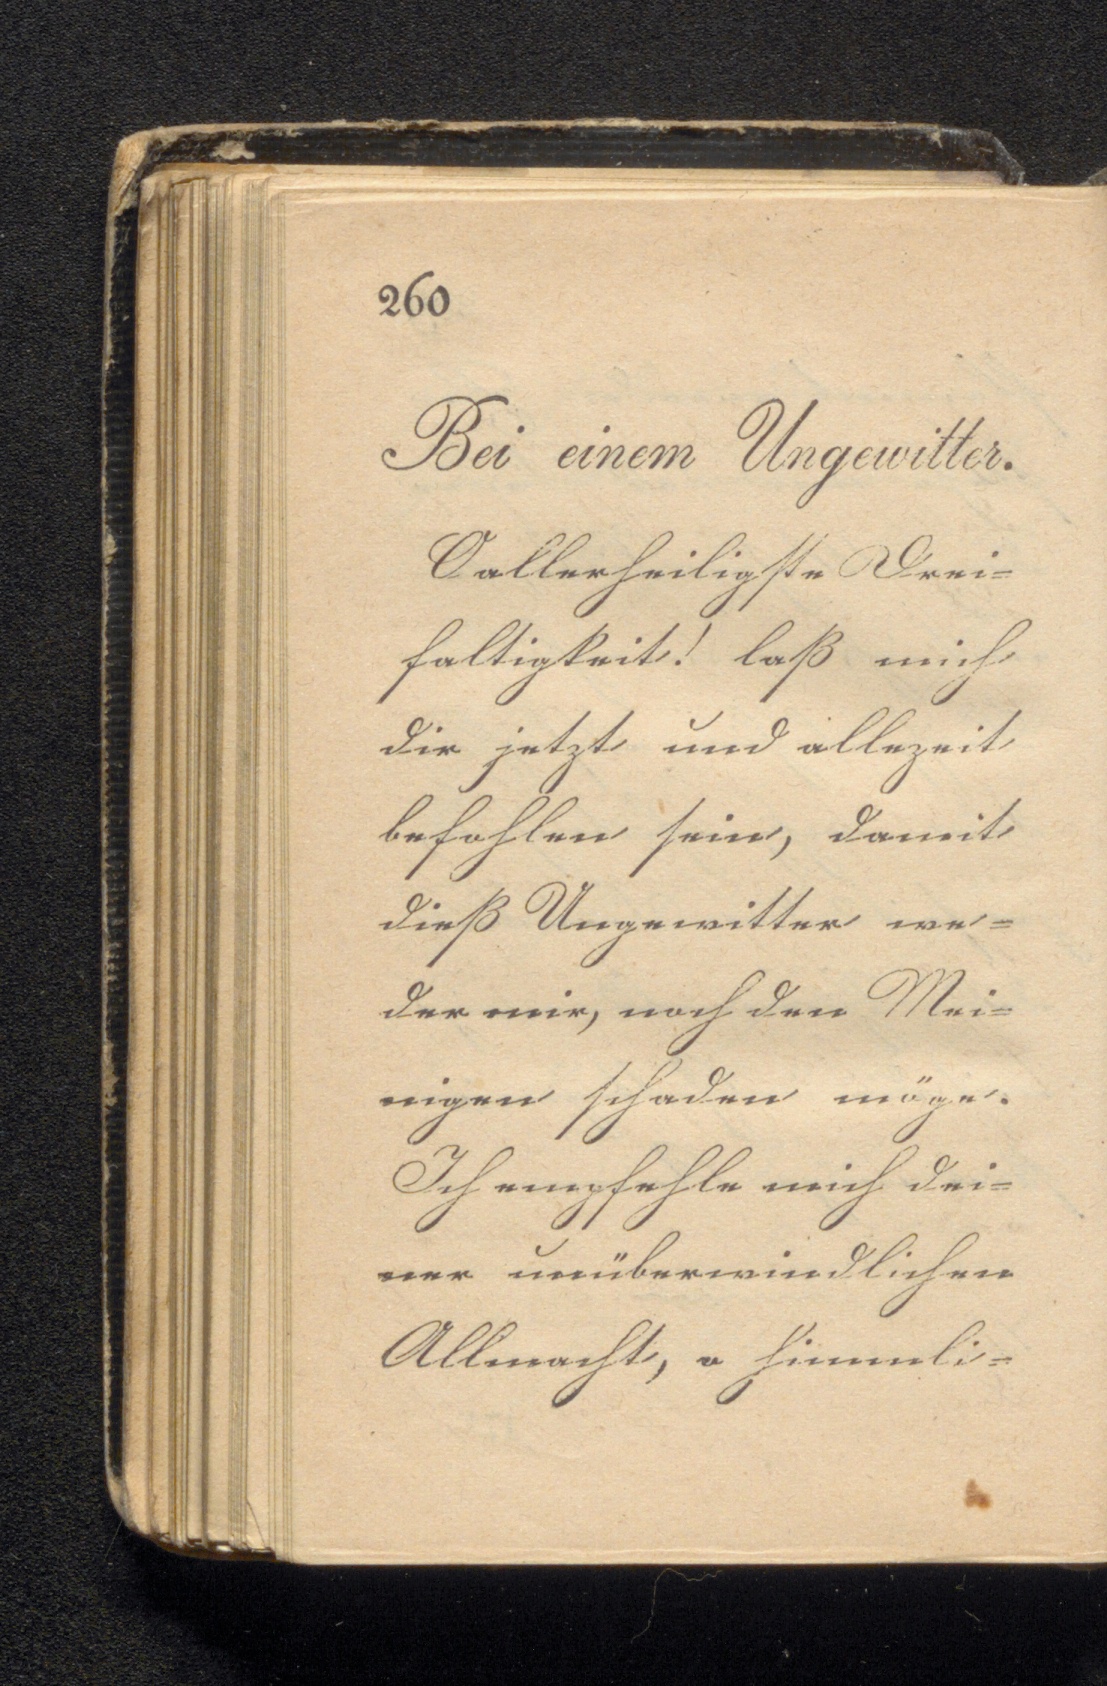 260
Bei einem Ungewitter.
O allerheiligste Drei=
faltigkeit! laß mich
dir jetzt und allezeit
befohlen sein, damit
dieß Ungewitter we=
der mir, noch den Mei=
nigen schaden möge.
Ich empfehle mich dei=
ner unüberwindlichen
Allmacht, o himmli=